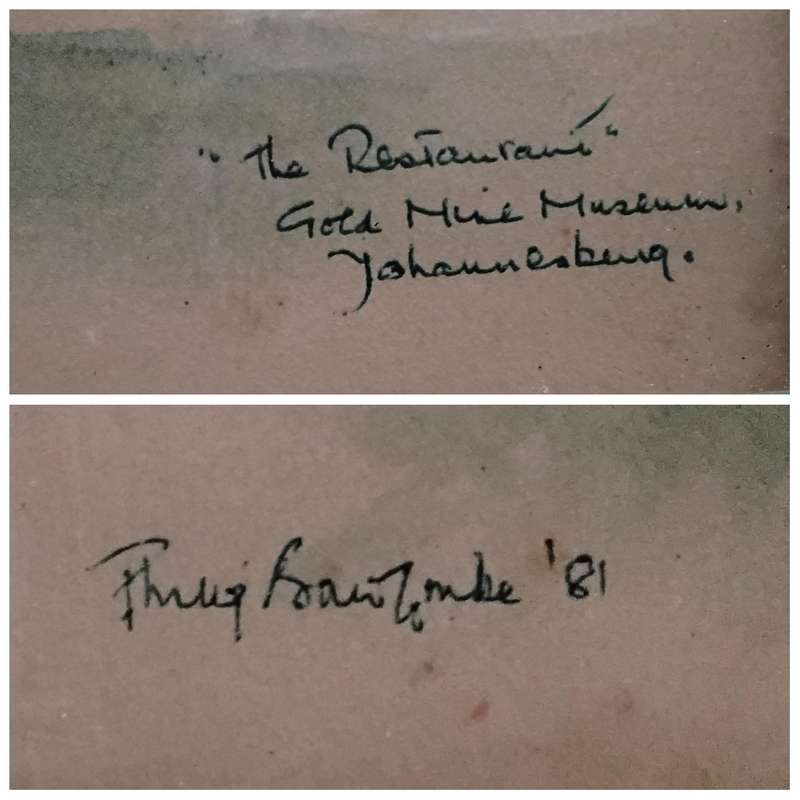 "The Restaurant"
Gold Mine Museum.
Johannesburg.
Philip Bawcombe '81